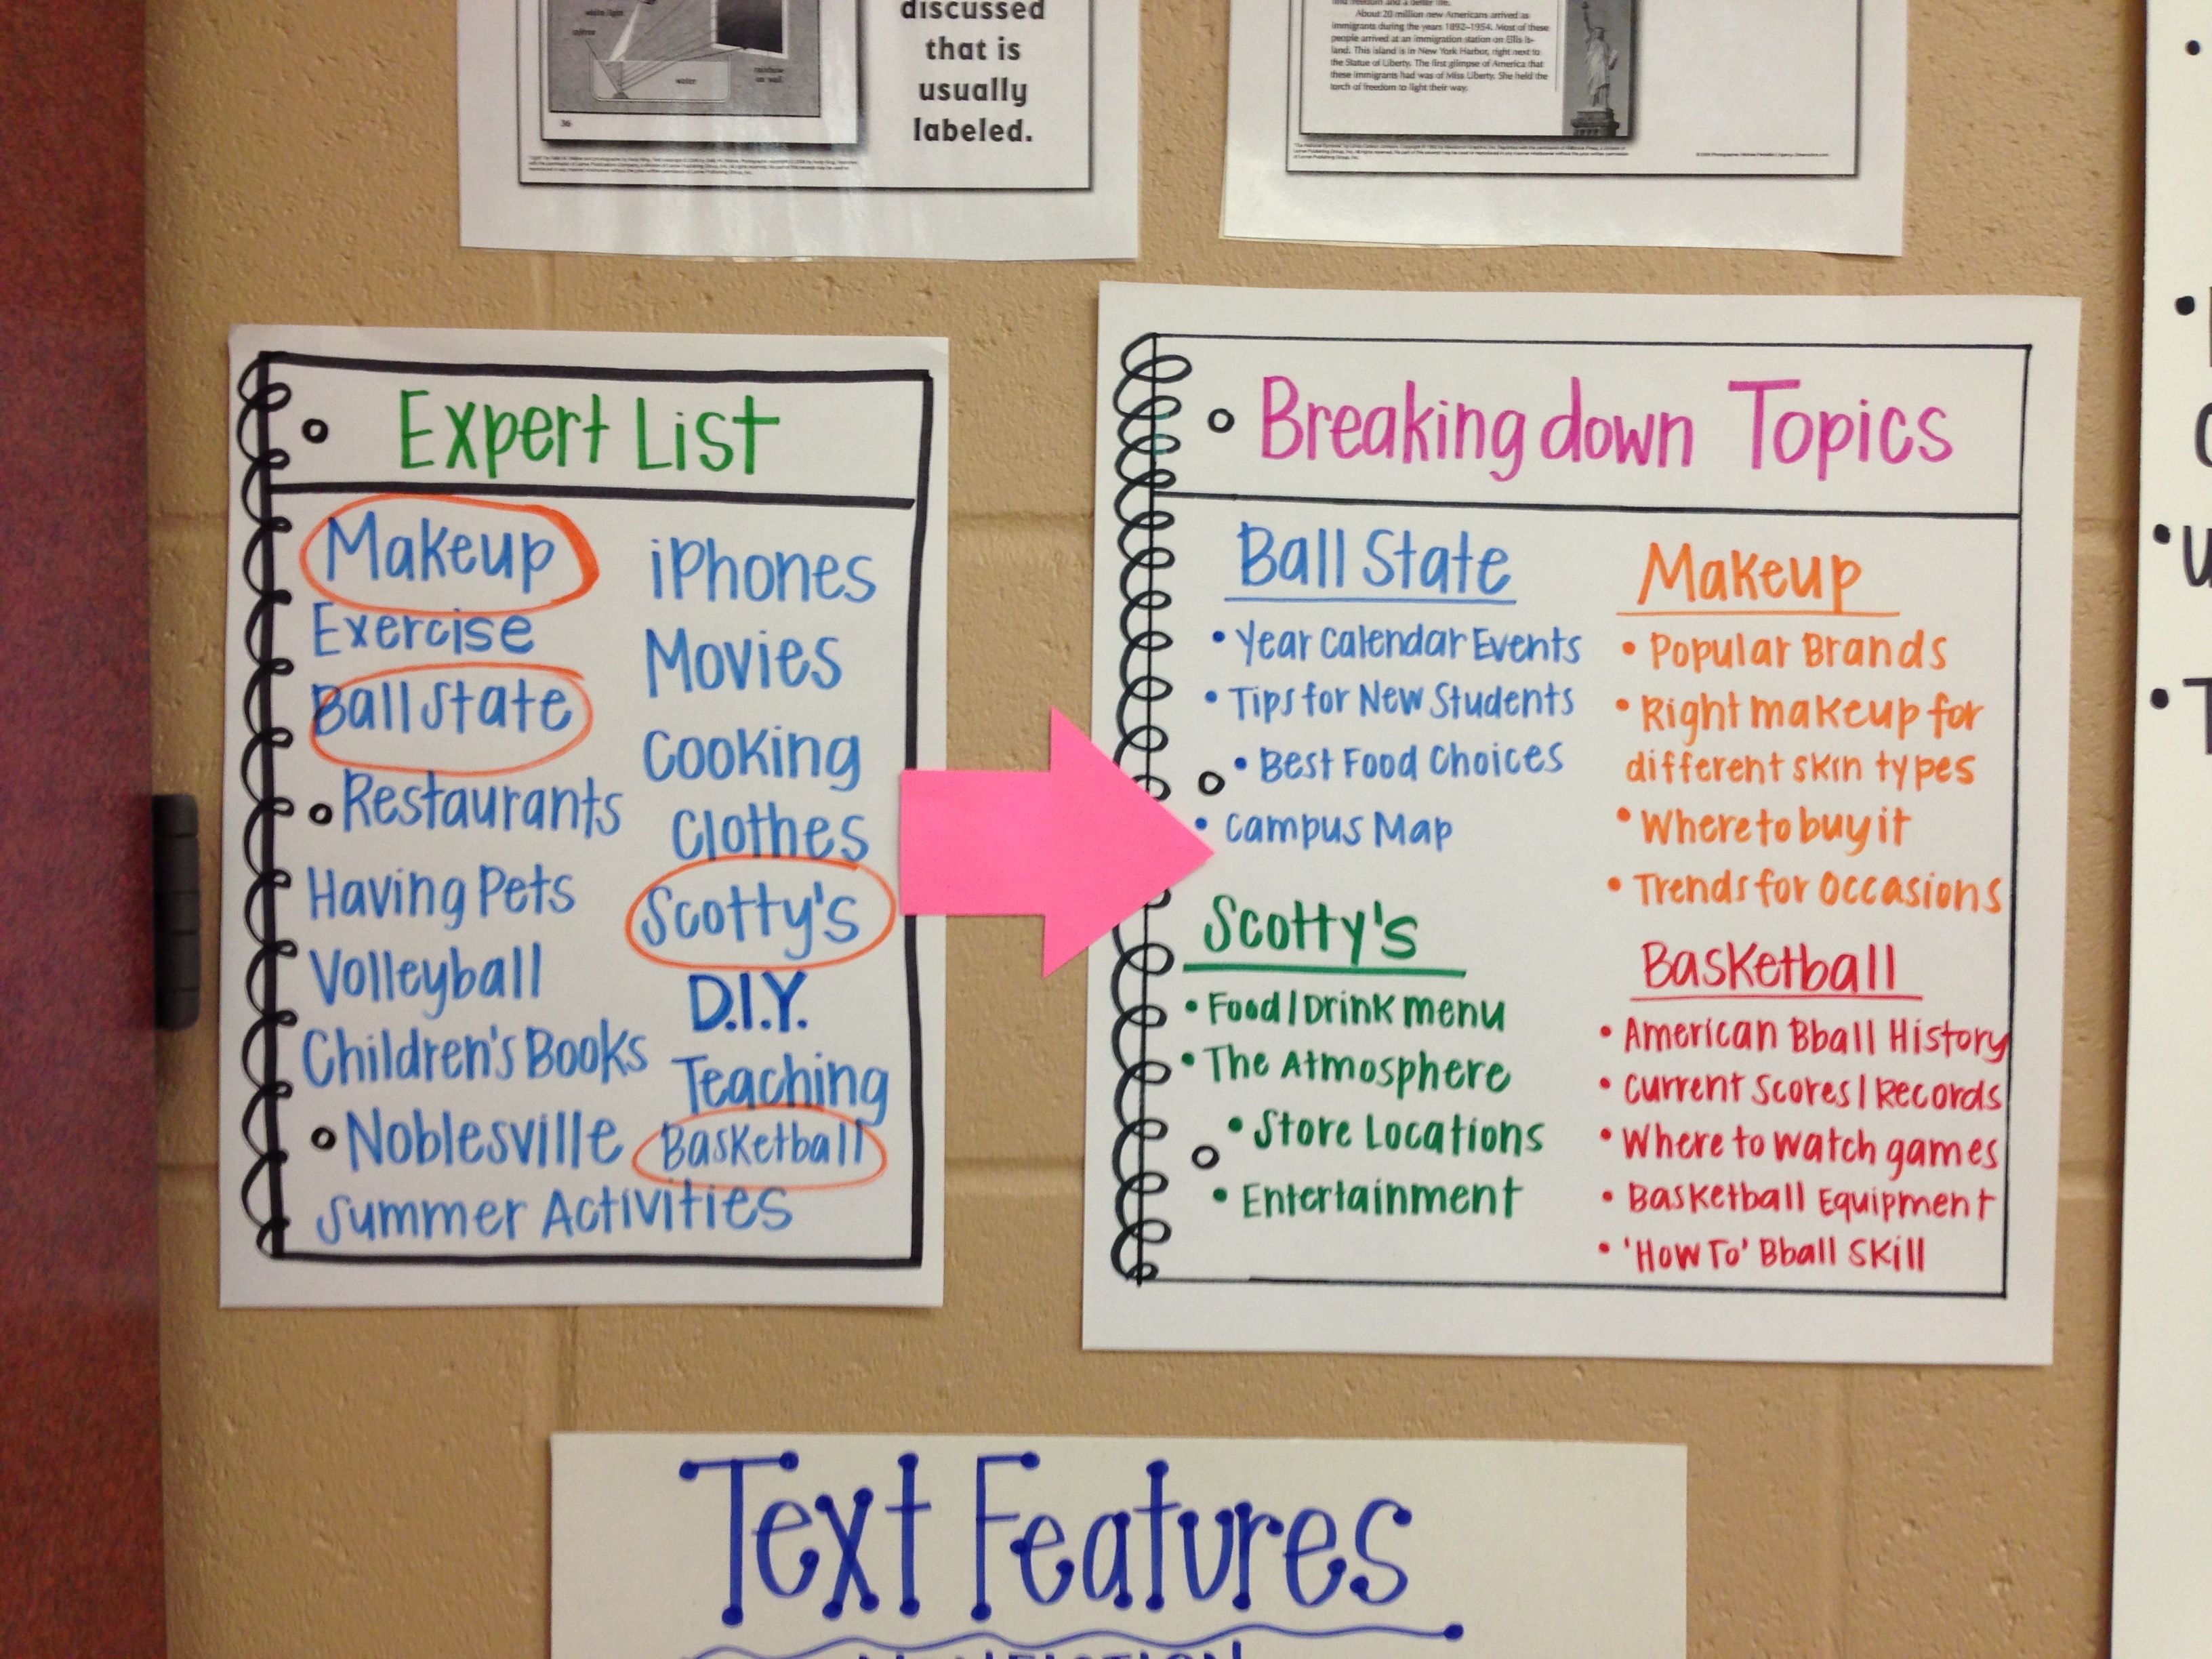 white light
mirror
water
rainbow
on wall
36
discussed
that is
usually
labeled.
About 20 million new Americans arrived as
immigrants during the years 1892–1954. Most of these
people arrived at an immigration station on Ellis Is-
land. This island is in New York Harbor, right next to
the Statue of Liberty. The first glimpse of America that
these immigrants had was of Miss Liberty. She held the
torch of freedom to light their way.
Expert List
Makeup
Exercise
Ball State
Restaurants
Having Pets
Volleyball
Children's Books
Noblesville
Summer Activities
iPhones
Movies
Cooking
Clothes
Scotty's
D.I.Y.
Teaching
Basketball
Breaking down Topics
Ball State
• Year Calendar Events
• Tips for New Students
• Best Food Choices
• Campus Map
Scotty's
• Food/Drink menu
• The Atmosphere
• Store Locations
• Entertainment
Makeup
• Popular Brands
• Right makeup for
different skin types
• Where to buy it
• Trends for Occasions
Basketball
• American Bball History
• Current Scores/Records
• Where to watch games
• Basketball Equipment
• 'How To' Bball Skill
Text Features